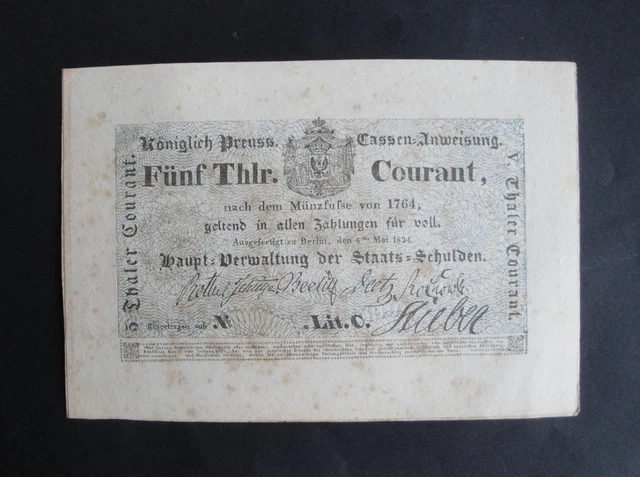 Königlich Preuss. Cassen-Anweisung.
Fünf Thlr. Courant,
nach dem Münzfuſse von 1764,
geltend in allen Zahlungen für voll.
Ausgefertigt zu Berlin, den 6ten Mai 1824.
Haupt-Verwaltung der Staats-Schulden.
Rother Schütze Beelitz Deetz Rochow
Eingetragen sub № .Lit.C. Stüeber
5 Thaler Courant.
V Thaler Courant.